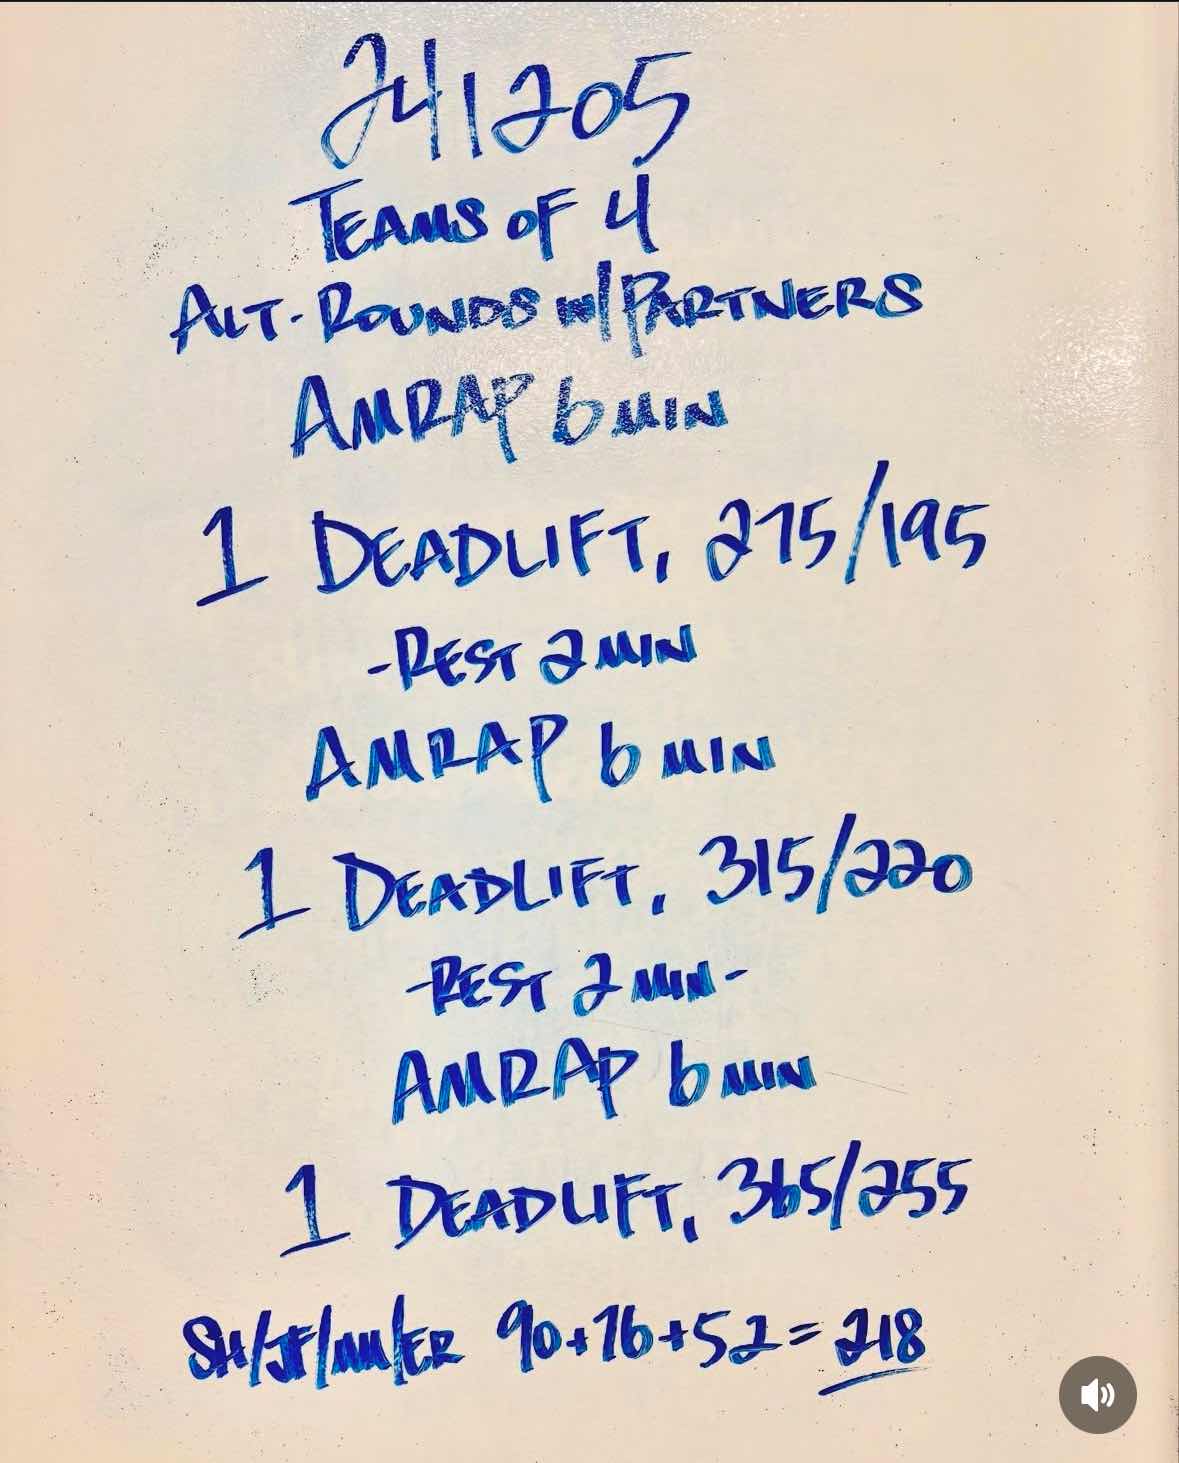 241205
TEAMS OF 4
ALT. ROUNDS W/ PARTNERS
AMRAP 6 MIN
1 DEADLIFT, 275/195
-REST 2 MIN
AMRAP 6 MIN
1 DEADLIFT, 315/220
-REST 2 MIN-
AMRAP 6 MIN
1 DEADLIFT, 365/255
SH/JF/MM/ER 90+76+52=218